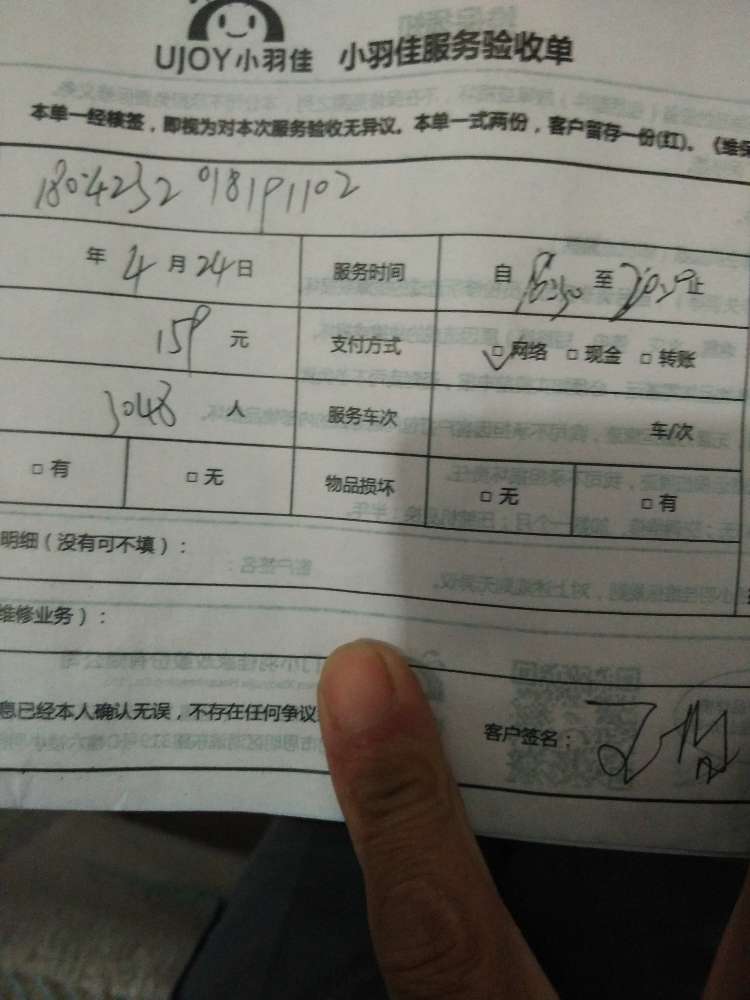 UJOY小羽佳 小羽佳服务验收单
本单一经核签，即视为对本次服务验收无异议。本单一式两份，客户留存一份(红)。《维保
1804232018191102
年 4 月 24 日 服务时间 自 至 止
159 元 支付方式 □ 网络 □ 现金 □ 转账
3048 人 服务车次 车/次
□ 有 □ 无 物品损坏 □ 无 □ 有
明细（没有可不填）：
维修业务）：
息已经本人确认无误，不存在任何争议
客户签名：